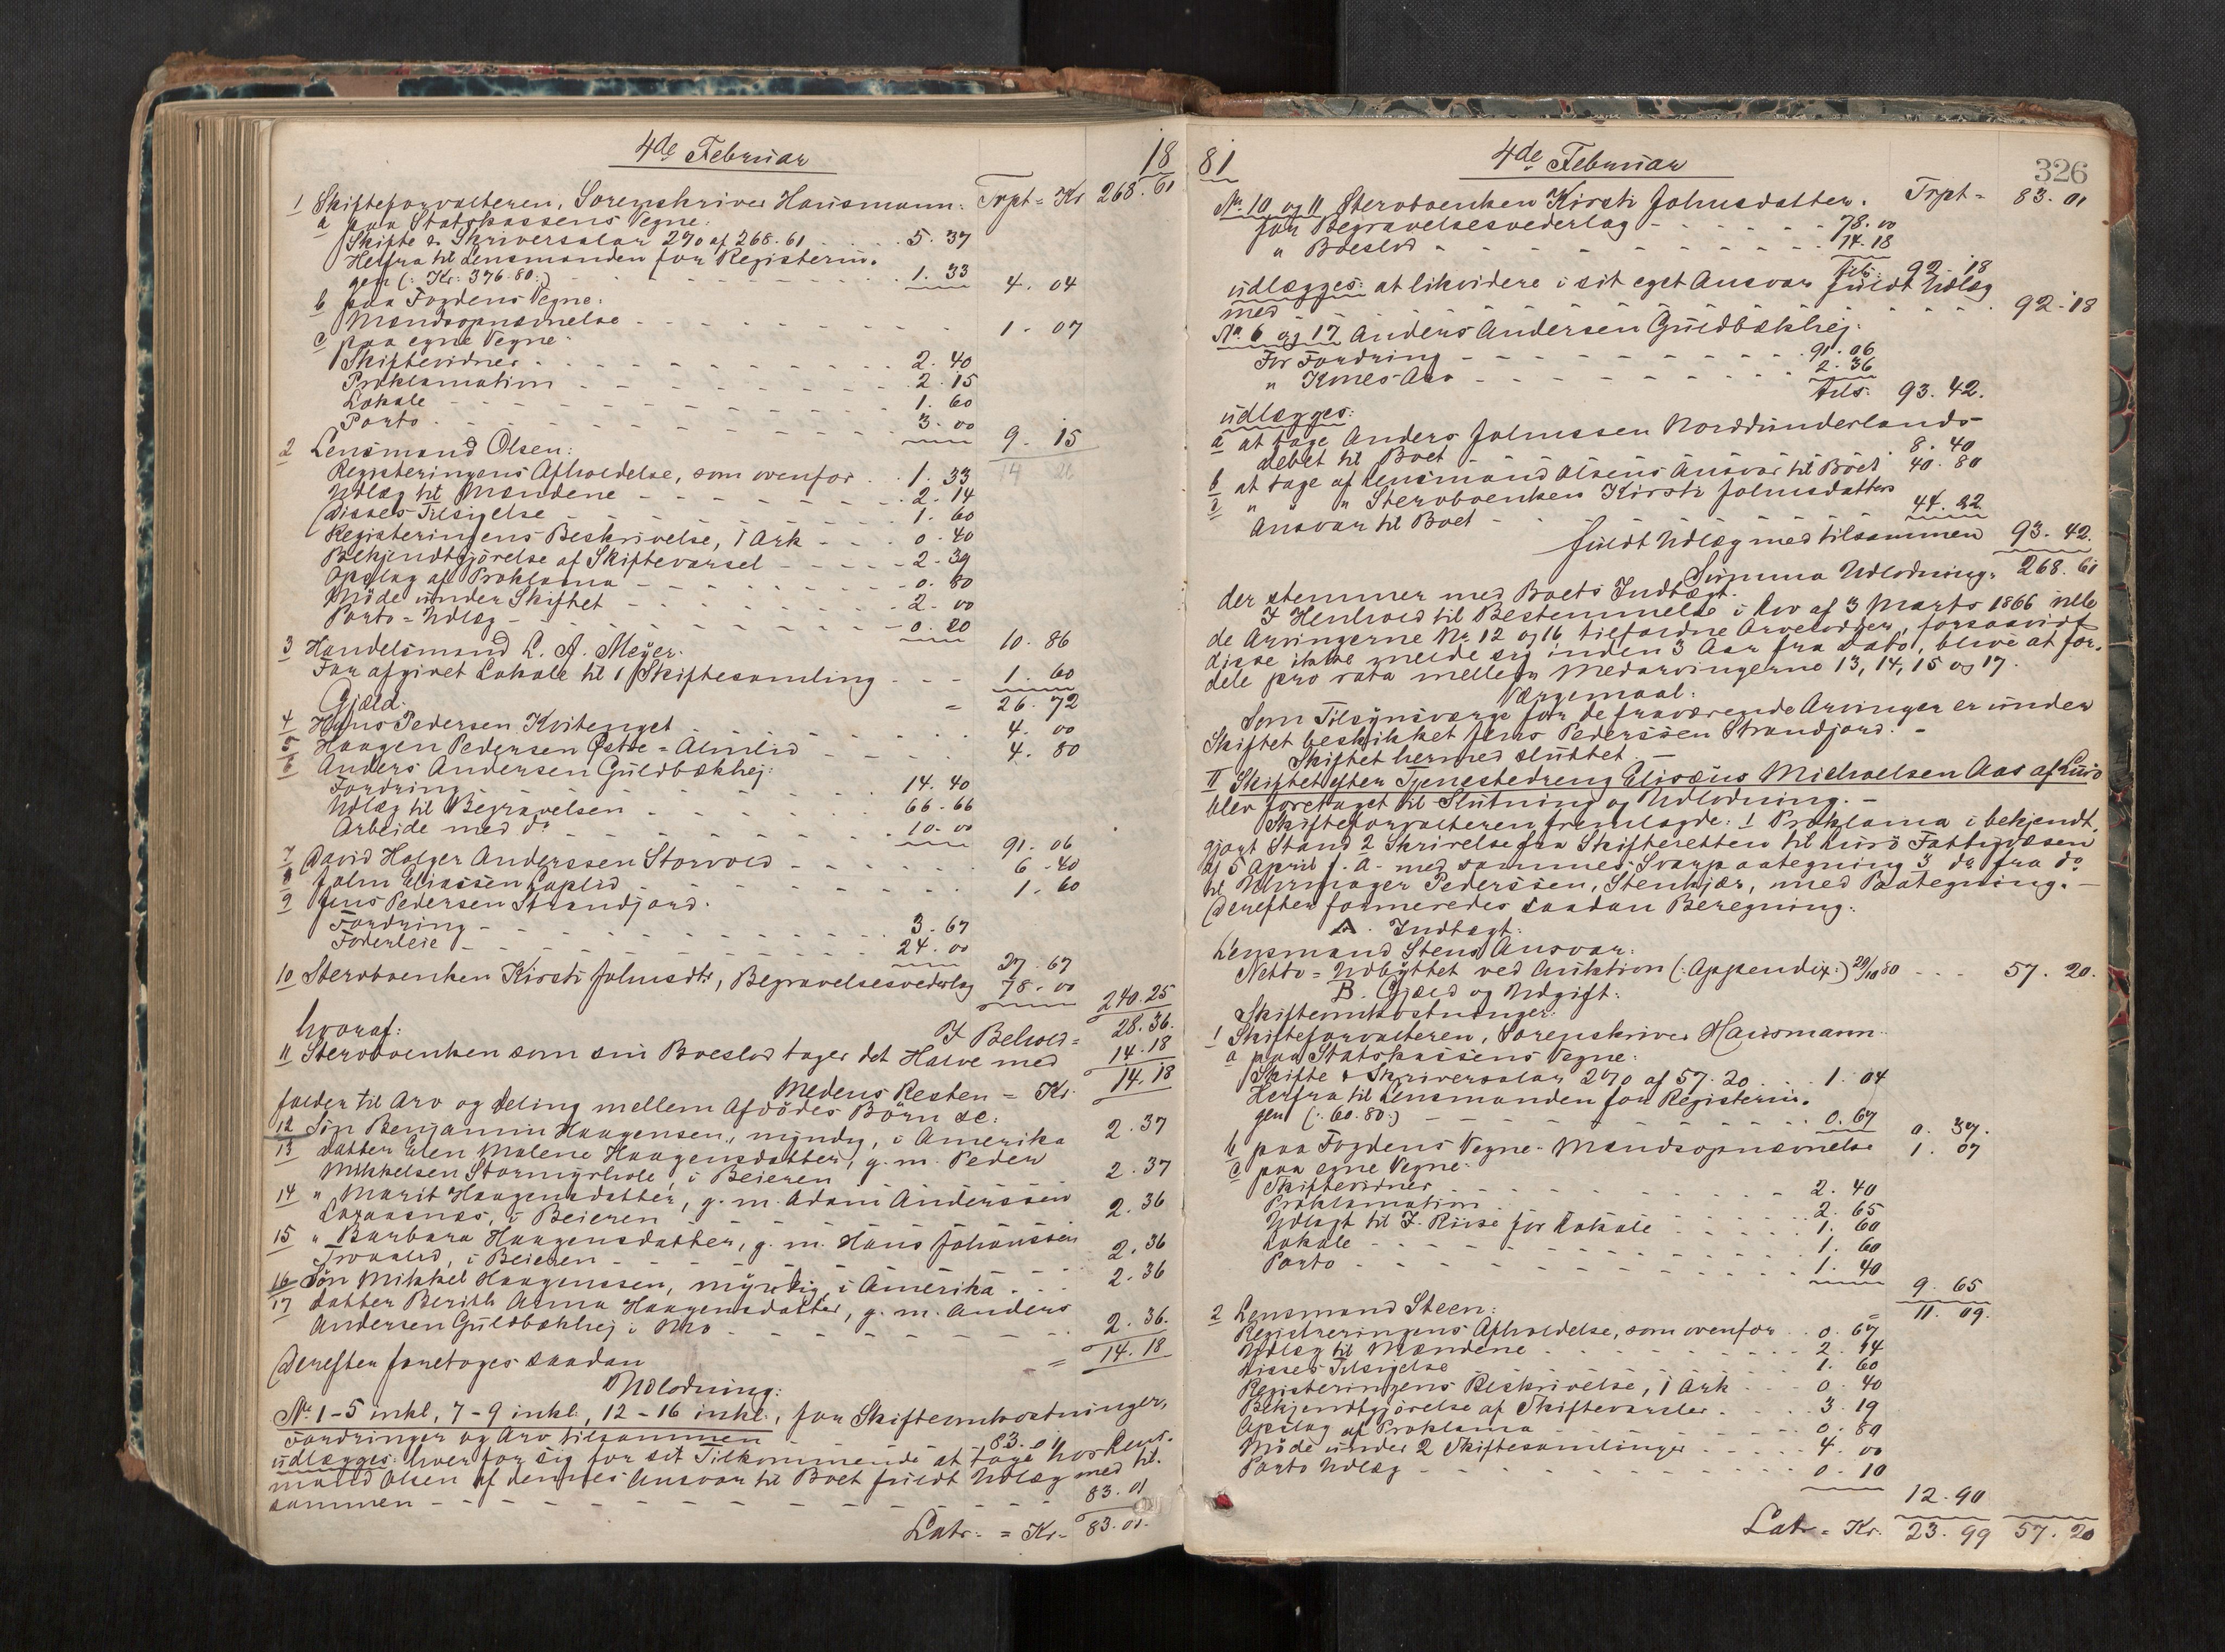 4de Februar
18
1 Skifteforvalteren, Sorenskriver Hausmann. Trpt = Kr 268.61
a paa Statskassens Vegne:
Skifte & Skriversalær 2% af 268.61 . . . 5.37
Herfra til Lensmanden for Registerin-
gen (: Kr. 376.80:) - - - 1.33 4.04
b paa Fogdens Vegne:
Mandsopnævnelse - - - 1.07
c paa egne Vegne:
Skiftevidner - - - 2.40
Proklamation - - - 2.15
Lokale - - - 1.60
Porto - - - 3.00 9.15
14 26
2 Lensmand Olsen:
Registeringens Afholdelse, som ovenfor . . 1.33
Udlæg til Mændene - - - 2.14
Disses Tilsigelse - - - 1.60
Registeringens Beskrivelse, 1 Ark - - - 0.40
Bekjendtgjörelse af Skiftevarsel - - - 2.39
Opslag af Proklama - - - 0.80
Möde under Skiftet - - - 2.00
Porto=Udlæg - - - 0.20 10.86
3 Handelsmand L. A. Meyer.
For afgivet Lokale til 1 Skiftesamling - - - 1.60
Gjæld. = 26.72
4 Hans Pedersen Kvitenget - - - 4.00
5 Haagen Pedersen Østre=Almlid - - - 4.80
6 Anders Andersen Guldbækhej:
Fordring - - - 14.40
Udlæg til Begravelsen - - - 66.66
Arbeide med do - - - 10.00 91.06
7 David Holger Anderssen Storvold - - - 6.40
8 John Eliassen Laplid - - - 1.60
9 Jens Pedersen Strandjord.
Fordring - - - 3.67
Foderleie - - - 24.00 27.67
10 Stervboenken Kirsti Johnsdtr, Begravelsesvederlag 78.00 240.25
I Behold = 28.36.
hvoraf:
11 Stervboenken som sin Boeslod tager det Halve med 14.18
Medens Resten = Kr. 14.18
falder til Arv og Deling mellem Afdödes Börn sc:
12 Sön Benjamin Haagensen, myndig, i Amerika 2.37
13 Datter Elen Malene Haagensdatter, g. m. Peder
Mikkelsen Stormyrhole, i Beieren 2.37
14 " Marit Haagensdatter, g. m. Adam Anderssen
Larsosnæs, i Beieren - - - 2.36
15 " Barbara Haagensdatter, g. m. Hans Johanssen
Trolid, i Beieren - - - 2.36
16 Sön Mikkel Haagenssen, myndig, i Amerika . . . 2.36
17 Datter Berith Anna Haagensdatter, g. m. Anders
Andersen Guldbækhej i Mo - - - 2.36.
Derefter foretoges saadan = 14.18
Udlodning:
No 1-5 inkl, 7-9 inkl., 12-16 inkl., for Skifteomkostninger,
Fordringer og Arv tilsammen - - - 83.01
udlægges: hver for sig for sit Tilkommende at tage hos Lens-
mand Olsen af dennes Ansvar til Boet fuldt Udlæg med til-
sammen - - - 83.01
Latr. = Kr. 83.01.
81
4de Februar
326
No 10 og 11 Stervboenken Kirsti Johnsdatter. Trpt = 83.01
for Begravelsesvederlag - - - 78.00
" Boeslod - - - 14.18
tils: 92.18
udlægges: at likvidere i sit eget Ansvar fuldt Udlæg
med - - - 92.18
No 6 og 17 Anders Andersen Guldbækhej:
For Fordring - - - 91.06
" Kones Arv - - - 2.36
tils: 93.42.
udlægges:
a at tage Anders Johnssen Norddunderlands-
debet til Boet - - - 8.40
b at tage af Lensmand Olsens Ansvar til Boet 40.80
c " " " Stervboenken Kirsti Johnsdatters
Ansvar til Boet - - - 44.22
fuldt Udlæg med tilsammen 93.42.
Summa Udlodning = 268.61
der stemmer med Boets Indtægt.
I Henhold til Bestemmelse i Lov af 3 Marts 1866 ville
de Arvingerne No 12 og 16 tilfaldne Arvelodder, forsaavidt
disse ikke melde sig inden 3 Aar fra Dato, blive at for-
dele pro rata mellem Medarvingerne 13, 14, 15 og 17.
Værgemaal:
Som Tilsynsværge for de fraværende Arvinger er under
Skiftet beskikket Jens Pederssen Strandjord. -
Skiftet hermed sluttet. -
II Skiftet efter Tjenestedreng Elisæus Michaelsen Aas af Lurö
blev foretaget til Slutning og Udlodning. -
Skifteforvalteren fremlagde: 1 Proklama i bekjendt-
gjort Stand 2 Skrivelse fra Skifteretten til Lurö Fattigvæsen
af 5 April f. A. med sammes Svarpaategning 3 do fra do
til Uhrmager Pederssen, Stenkjær, med Paategning. -
Derefter formeredes saadan Beregning:
A. Indtægt:
Lensmand Steens Ansvar:
Netto=Udbyttet ved Auktion (: Appendix:) 29/10 80 - - - 57.20.
B. Gjæld og Udgift:
Skifteomkostninger:
1 Skifteforvalteren, Sorenskriver Hausmann.
a paa Statskassens Vegne:
Skifte & Skriversalær 2% af 57.20 . . . 1.04
Herfra til Lensmanden for Registerin-
gen (: 60.80:) - - - 0.67 0.37.
b paa Fogdens Vegne. Mandsopnævnelse 1.07
c paa egne Vegne:
Skiftevidner - - - 2.40
Proklamation - - - 2.65
Udlagt til J. Riise for Lokale - - - 1.60
Lokale - - - 1.60
Porto - - - 1.40 9.65
= 11.09.
2 Lensmand Steen:
Registreringens Afholdelse, som ovenfor . . 0.67
Udlæg til Mændene - - - 2.14
Disses Tilsigelse - - - 1.60
Registeringens Beskrivelse, 1 Ark - - - 0.40
Bekjendtgjörelse af Skiftevarsler - - - 3.19
Opslag af Proklama - - - 0.80
Möde under 2 Skiftesamlinger - - - 4.00
Porto Udlæg - - - 0.10
12.90
Latr = Kr. 23.99 57.20